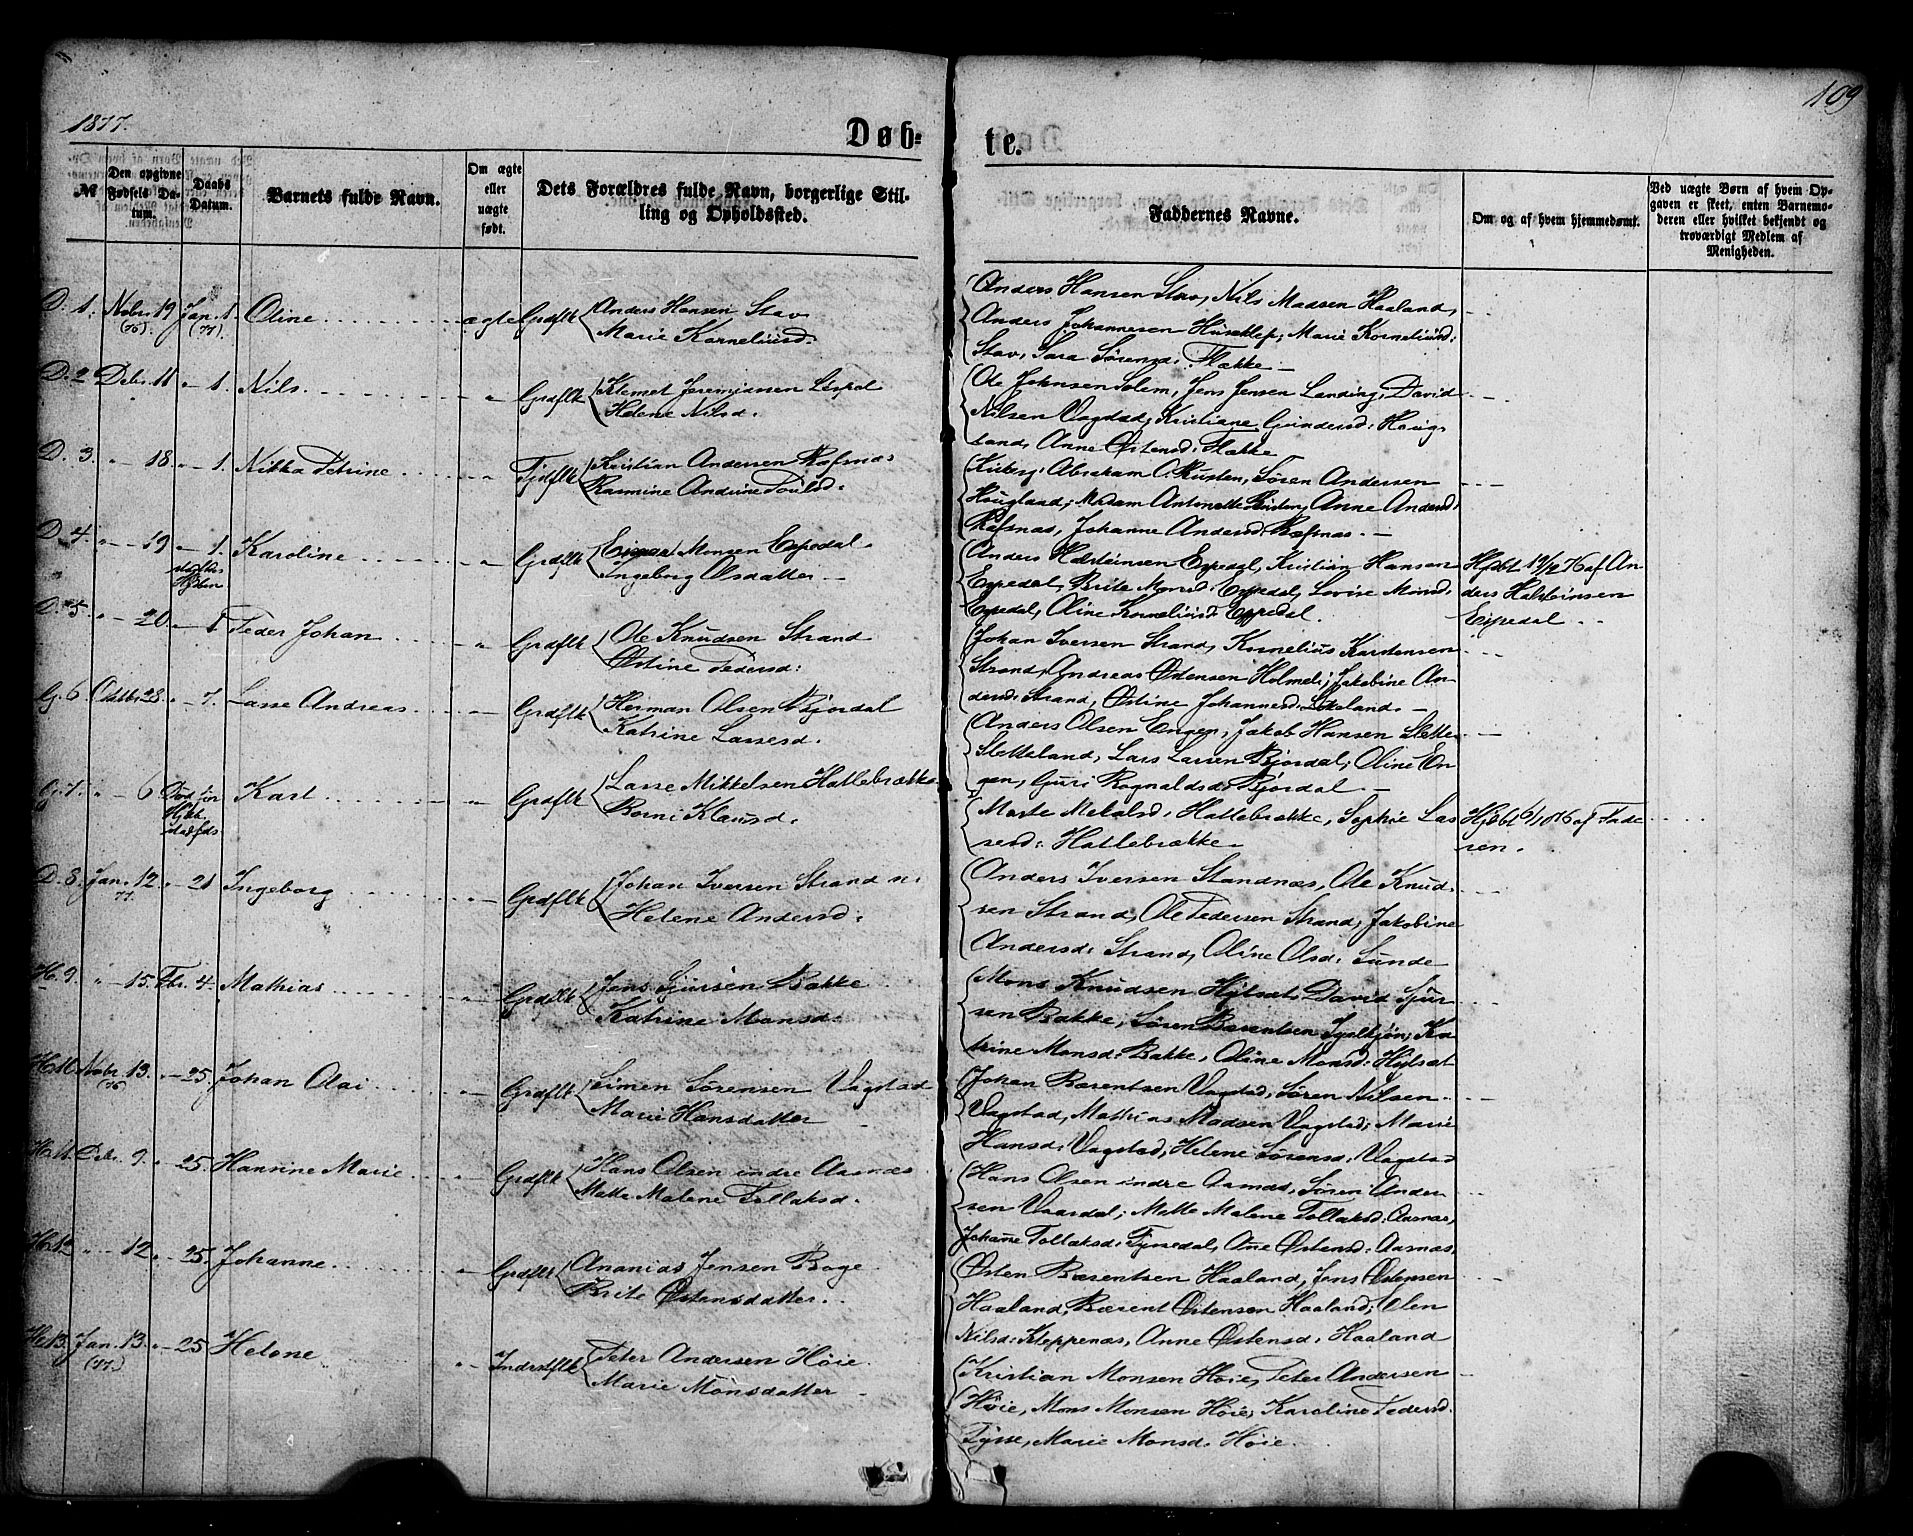 1877.
Døb-
te.
109
№
Den opgivne Fødsels Datum.
Daabs Datum.
Barnets fulde Navn.
Om ægte eller uægte født.
Dets Forældres fulde Navn, borgerlige Stilling og Opholdssted.
Faddernes Navne.
Om og af hvem hjemmedømt.
Ved uægte Børn af hvem Opgaven er skeet, enten Barnemoderen eller hvilket bekjendt og troværdigt Medlem af Menigheden.
D. 1. Nobr. 19 (76) Jan. 1. (77) Oline ægte Grdflk Anders Hansen Stav
Marie Korneliusd.
Anders Hansen Stav, Nils Madsen Haaland,
Anders Johannesen Huseklep; Marie Korneliusd:
Stav, Sara Sørensd: Flække
D. 2 Debr. 11 " 1. Nils. " Grdflk Klemet Jeremiasen
Helene Nilsd.
Ole Johnsen Solem, Jens Jensen Landing, David
Nilsen Vagstad, Kristiane Gundersd: Haug-
land, Anne Østensd: Flække
D. 3. " 18. " 1. Nikka Petrine " Kristian Andersen Ræfsnæs
Rasmine Andrine
Abraham O. Rusten, Søren Andersen
Hougland; Madam Antonette Rusten, Anne Andersd:
Ræfsnæs, Johanne Andersd: Ræfsnæs.
D. 4. " 19 " 1. Karoline " Grdflk Monsen Espedal.
Ingeborg Olsdatter
Anders Halsteinsen Espedal, Kristian Hansen
Espedal, Brite Monsd: Espedal, Lovise Monsd:
Espedal, Oline Korneliusd: Espedal.
Hjdbt 19/12 76 af An-
ders Halsteinsen
Espedal
D. 5. " 20. " 1 Peder Johan " Grdflk Ole Knudsen Strand
Østine Pedersd:
Johan Iversen Strand, Kornelius Karstensen
Strand, Andreas Østensen Holmel; Jakobine An-
dersd: Strand, Østine Johannesd:
G. 6 Octbr. 28. " 7. Lasse Andreas " Grdflk Herman Olsen Bjordal
Katrine Lassesd.
Anders Olsen Engen, Jakob Hansen Slette-
Sletteland, Lars Larsen Bjordal, Oline En-
gen, Guri Rognaldsd: Bjordal
G. 7. " 6 Død før Karl " Grdflk Lasse Mikkelsen Hatlebrække
Borni Klausd.
Marte Mekalsd: Hatlebrække, Sophie Las
sesd: Hatlebrække
Hjdbt af Fade
ren.
D. 8. Jan. 12. 77. " 21 Ingeborg " Grdflk Johan Iversen Strand n.
Helene Andersd:
Anders Iversen Standnæs, Ole Knud-
sen Strand, Ole Pedersen Strand; Jakobine
Andersd: Strand, Oline Olsd: Sunde
H. 9. " 15. Fbr. 4. Mathias " Grdflk Jens Sjursen Bakke
Katrine Monsd:
Mons Knudsen Hylsæt, David Sjur-
sen Bakke, Søren Bærentsen; Ka
trine Monsd: Bakke, Oline Monsd: Hylsæt
10. Nobr. 13. (76) " 25. Johan Olai " Grdflk Simen Sørensen Vagstad
Marie Hansdatter
Johan Bærentsen Vagstad, Søren Nilsen
Vagstad, Mathias Madsen Vagstad; Marie
Hansd: Vagstad, Helene Sørensd: Vagstad
11. Debr. 9. " 25. Hansine Marie " Grdflk Hans Olsen indre Aasnæs
Mette Malene Tollaksd.
Hans Olsen indre Aasnæs, Søren Ander-
sen Vaardal; Mette Malene Tollaksd: Aasnæs,
Johane Tollaksd:, Ane Østensd: Aasnæs.
12 " 12. " 25. Johanne " Grdflk Ananias Jensen Boge
Brite Østensdatter.
Østen Bærentsen Haaland, Jens Østensen
Haaland, Bærent Østensen Haaland; Elen
Nilsd: Kleppenæs, Anne Østensd: Haaland
13. Jan. 13. (77.) " 25 Helene " Indrstflk Peter Andersen Høie.
Marie Monsdatter
Kristian Monsen Høie, Peter Andersen
Høie, Mons Monsen Høie; Karoline Pedersd.
Tysse, Marie Monsd. Høie.